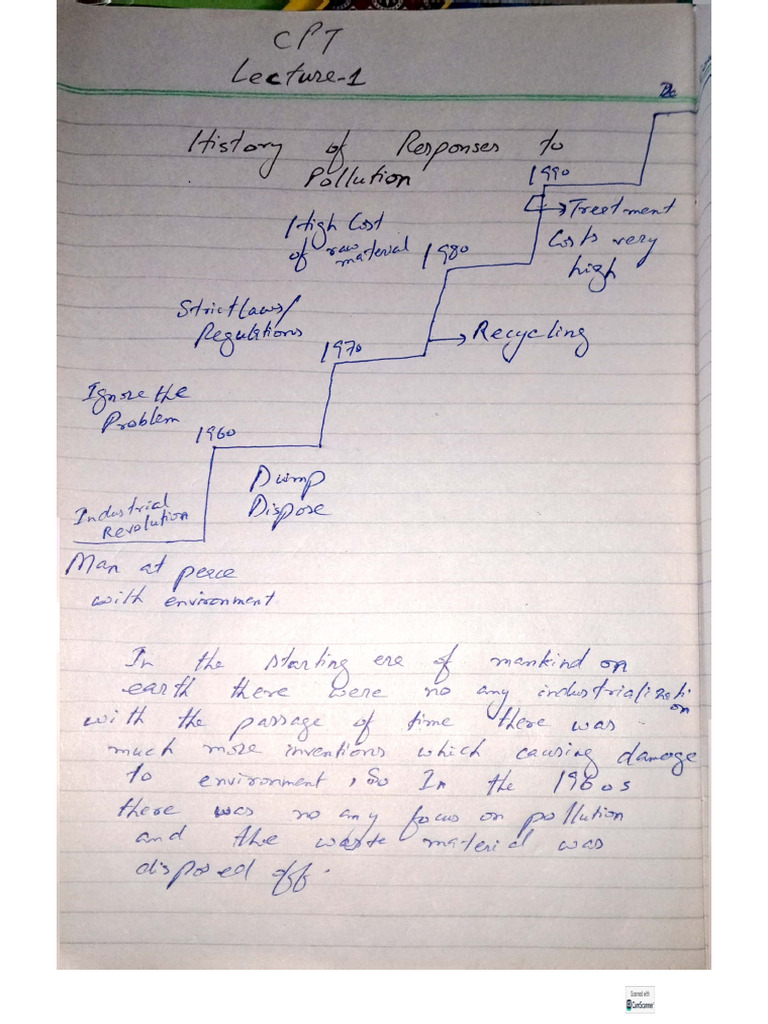 CPT
Lecture-1
History of Responses to
Pollution
1990
→ Treetment
Costs very
high
High Cost
of raw
material
1980
Strict laws/
Regulations
1970
→ Recycling
Ignore the
Problem
1960
Dump
Dispose
Industrial
Revolution
Man at peace
with environment
In the starting ere of mankind on
earth there were no any industrialization
with the passage of time there was
much more inventions which causing damage
to environment, So In the 1960s
there was no any focus on pollution
and the waste material was
disposed off.
Scanned with
CamScanner